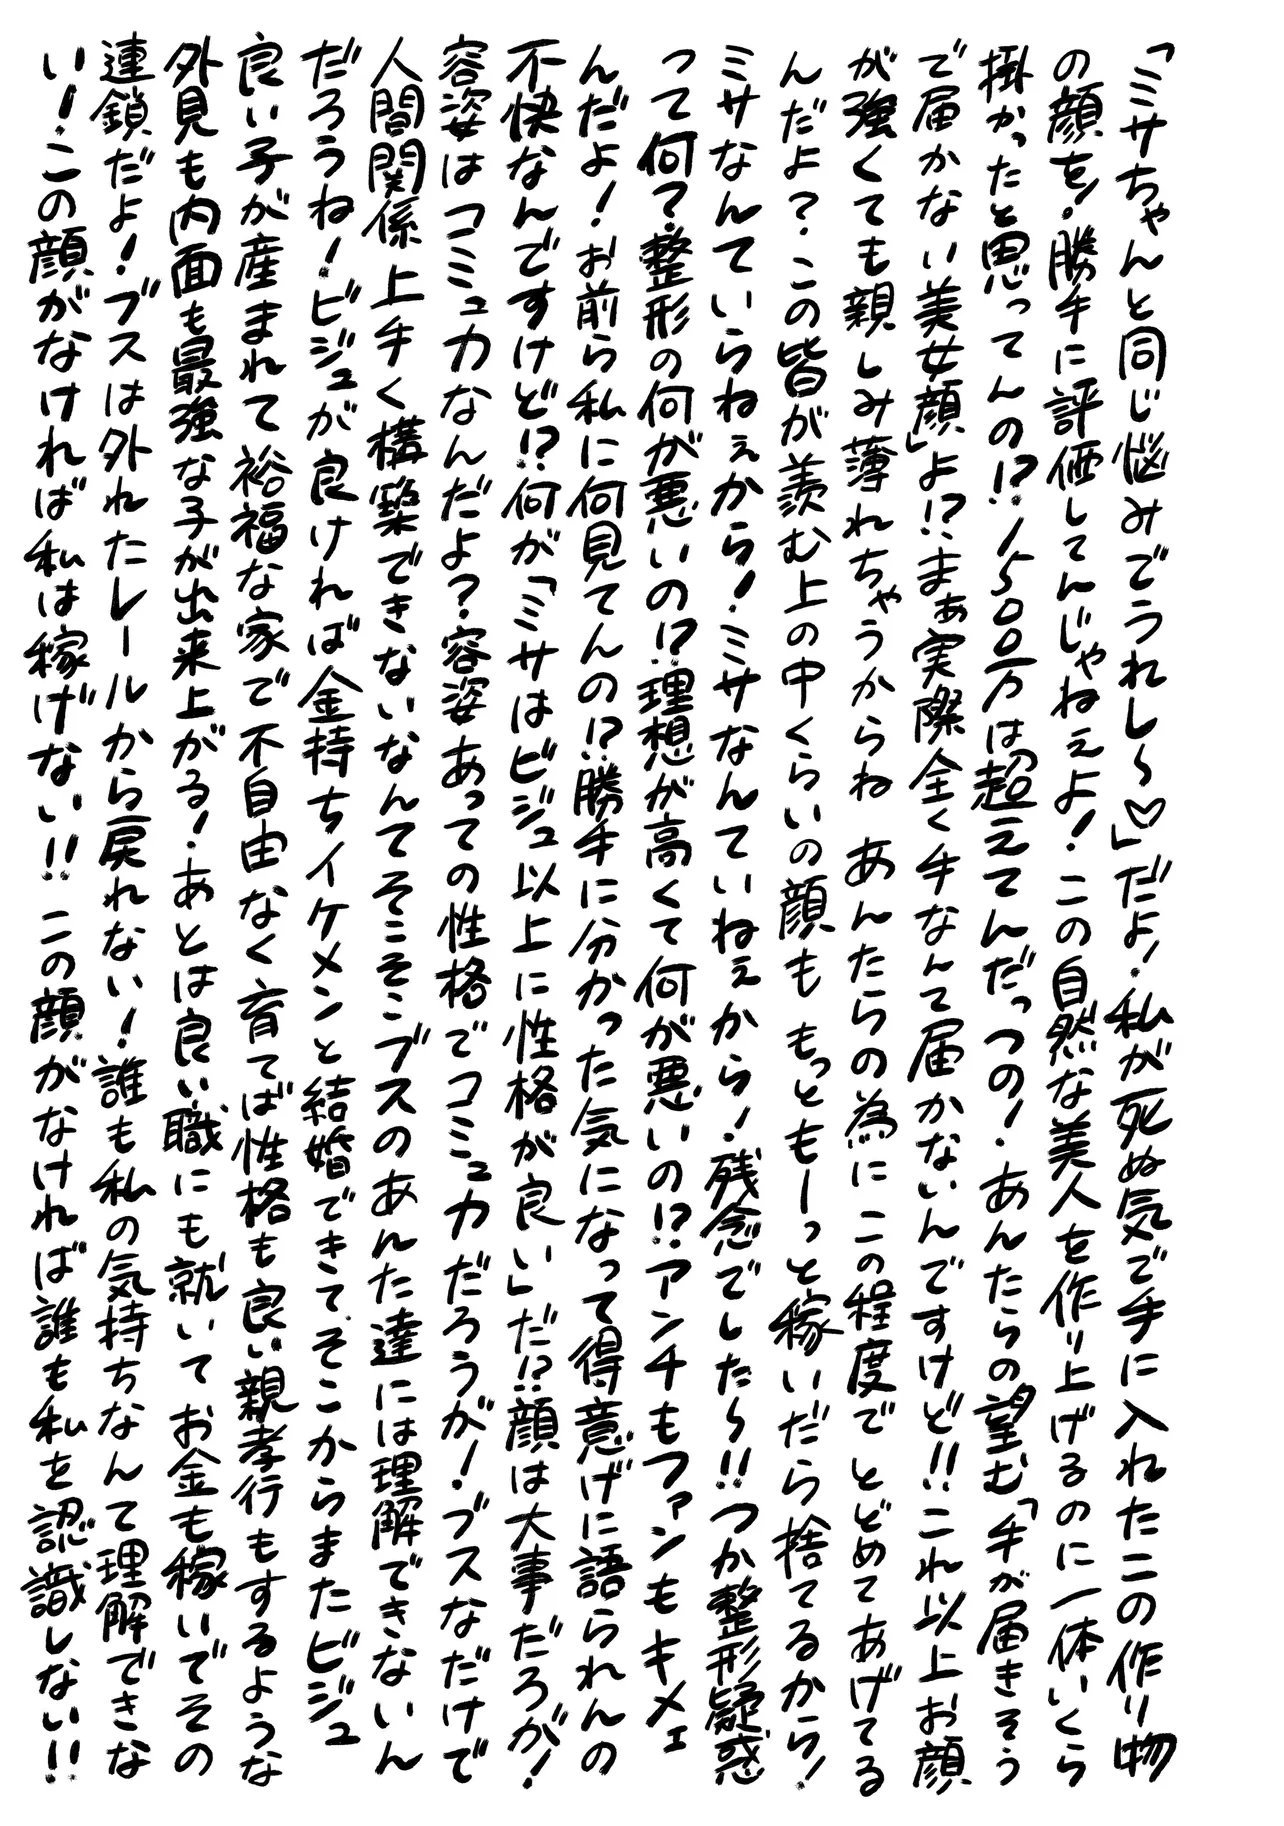 「ミサちゃんと同じ悩みでうれし〜♡」だよ！私が死ぬ気で手に入れたこの作り物
の顔を！勝手に評価してんじゃねぇよ！この自然な美人を作り上げるのに一体いくら
掛かったと思ってんの!?1500万は超えてんだっつの！あんたらの望む「手が届きそう
で届かない美女顔」よ!?まぁ実際全く手なんて届かないんですけど!!これ以上お顔
が強くても親しみ薄れちゃうからね あんたらの為にこの程度でとどめてあげてる
んだよ？この皆が羨む上の中くらいの顔も もっともーっと稼いだら捨てるから！
ミサなんていらねぇから！ミサなんていねぇから！残念でした〜!!つか整形疑惑
って何？整形の何が悪いの!?理想が高くて何が悪いの!?アンチもファンもキメェ
んだよ！お前ら私に何見てんの!?勝手に分かった気になって得意げに語られんの
不快なんですけど!?何が「ミサはビジュ以上に性格が良い」だ!?顔は大事だろが！
容姿はコミュ力なんだよ？容姿あっての性格でコミュ力だろうが！ブスなだけで
人間関係上手く構築できないなんてそこそこブスのあんた達には理解できないん
だろうね！ビジュが良ければ金持ちイケメンと結婚できて、そこからまたビジュ
良い子が産まれて裕福な家で不自由なく育てば性格も良い親孝行もするような
外見も内面も最強な子が出来上がる！あとは良い職にも就いてお金も稼いでその
連鎖だよ！ブスは外れたレールから戻れない！誰も私の気持ちなんて理解できな
い！この顔がなければ私は稼げない!!この顔がなければ誰も私を認識しない!!